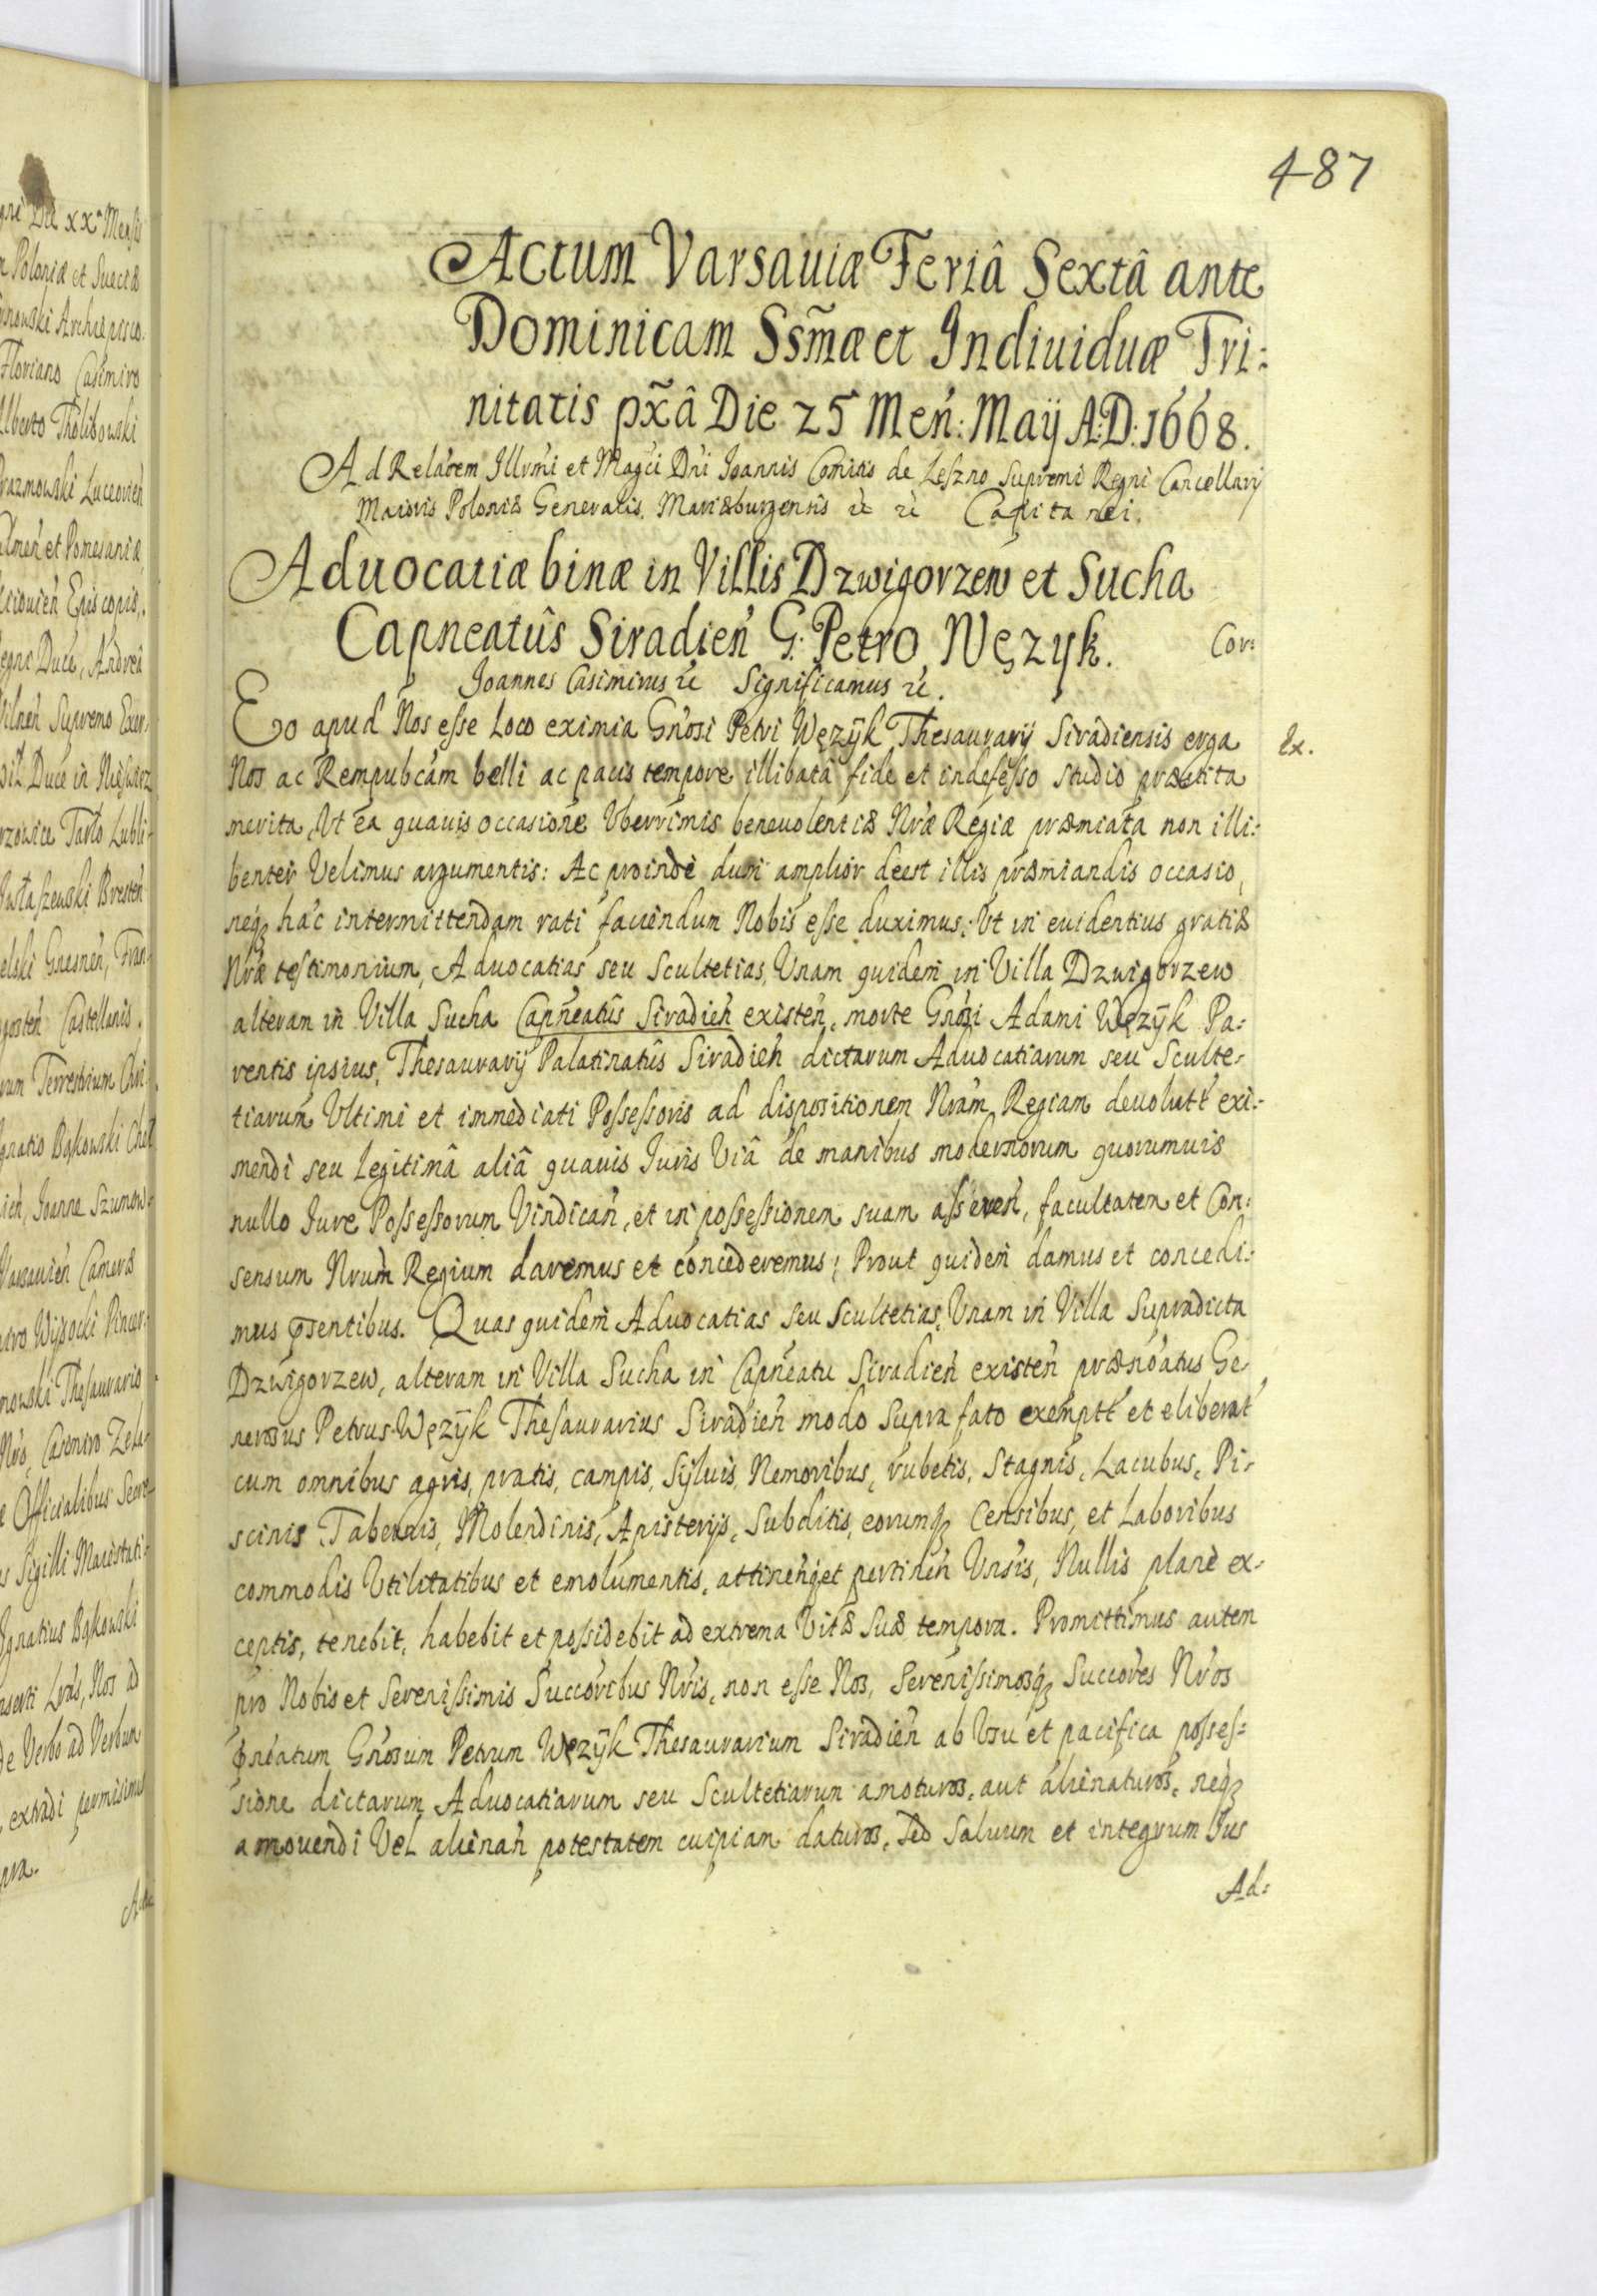 487
Actum Varsauiæ Feriâ Sextâ ante
Dominicam Ss̃mæ et Indiuiduæ Tri:
nitatis px̃â Die 25 Meń: Maÿ A:D: 1668.
Ad Relãtem Illvmi et Magci Dni Joannis Comitis de Leszno Supremi Regni Cancellarÿ
Maioris Poloniæ Generalis, Mariæburgensis &c &c Capitanei.
Aduocatiæ binæ in Villis Dzwigorzew et Sucha
Capneatûs Siradień G. Petro Węzyk.
Cor:
Joannes Casimirus &c Significamus &c.
Eo apud Nos esse Loco eximia Gnosi Petri Węzÿk Thesaurarÿ Siradiensis erga
Ex.
Nos ac Rempubcam belli ac pacis tempore illibatâ fide et indefesso studio præstita
merita, Ut ea quauis occasione Uberrimis beneuolentiæ Nræ Regiæ præmiata non illi:
benter Velimus argumentis: Ac proinde dum amplior deest illis præmiandis occasio,
neq₃ hac intermittendam rati faciendum Nobis esse duximus: Ut in euidentius gratiæ
Nræ testimonium, Aduocatias seu Scultetias, Unam quidem in Villa Dzwigorzew
alteram in Villa Sucha Capneatûs Siradień existeń, morte Gnosi Adami Węzÿk Pa:
rentis ipsius, Thesaurarÿ Palatinatûs Siradień dictarum Aduocatiarum seu Sculte:
tiarum Ultimi et immediati Possessoris ad dispositionem Nram Regiam deuolutt exi:
mendi seu Legitimâ aliâ quauis Juris Viâ de manibus modernorum quorumuis
nullo Jure Possessorum Vindicań, et in possessionem suam asseren, facultatem et Con:
sensum Nrum Regium daremus et concederemus; Prout quidem damus et concedi:
mus psentibus. Quas quidem Aduocatias seu Scultetias, Unam in Villa Supradicta
Dzwigorzew, alteram in Villa Sucha in Capneatu Siradień existeń prænoatus Ge:
nerosus Petrus Węzÿk Thesaurarius Siradień modo supra fato exemptt et eliberat
cum omnibus agris, pratis, campis, Syluis, Nemoribus, rubetis, Stagnis, Lacubus, Pi:
scinis, Tabernis, Molendinis, Apisterijs, Subditis, eorumq₃ Censibus, et Laboribus
commodis Utilitatibus et emolumentis, attineń et pertineń Unsis, Nullis plane ex:
ceptis, tenebit, habebit et possidebit ad extrema Vitæ Suæ tempora. Promittimus autem
pro Nobis et Serenissimis Succoribus Nris, non esse Nos, Serenissimosq₃ Succores Nros
pneatum Gnosum Petrum Węzÿk Thesaurarium Siradień ab Usu et pacifica posses:
sione dictarum Aduocatiarum seu Scultetiarum amoturos, aut alienaturos, neq₃
amouendi Vel alienań potestatem cuipiam daturos, Sed Saluum et integrum Jus
Ad: